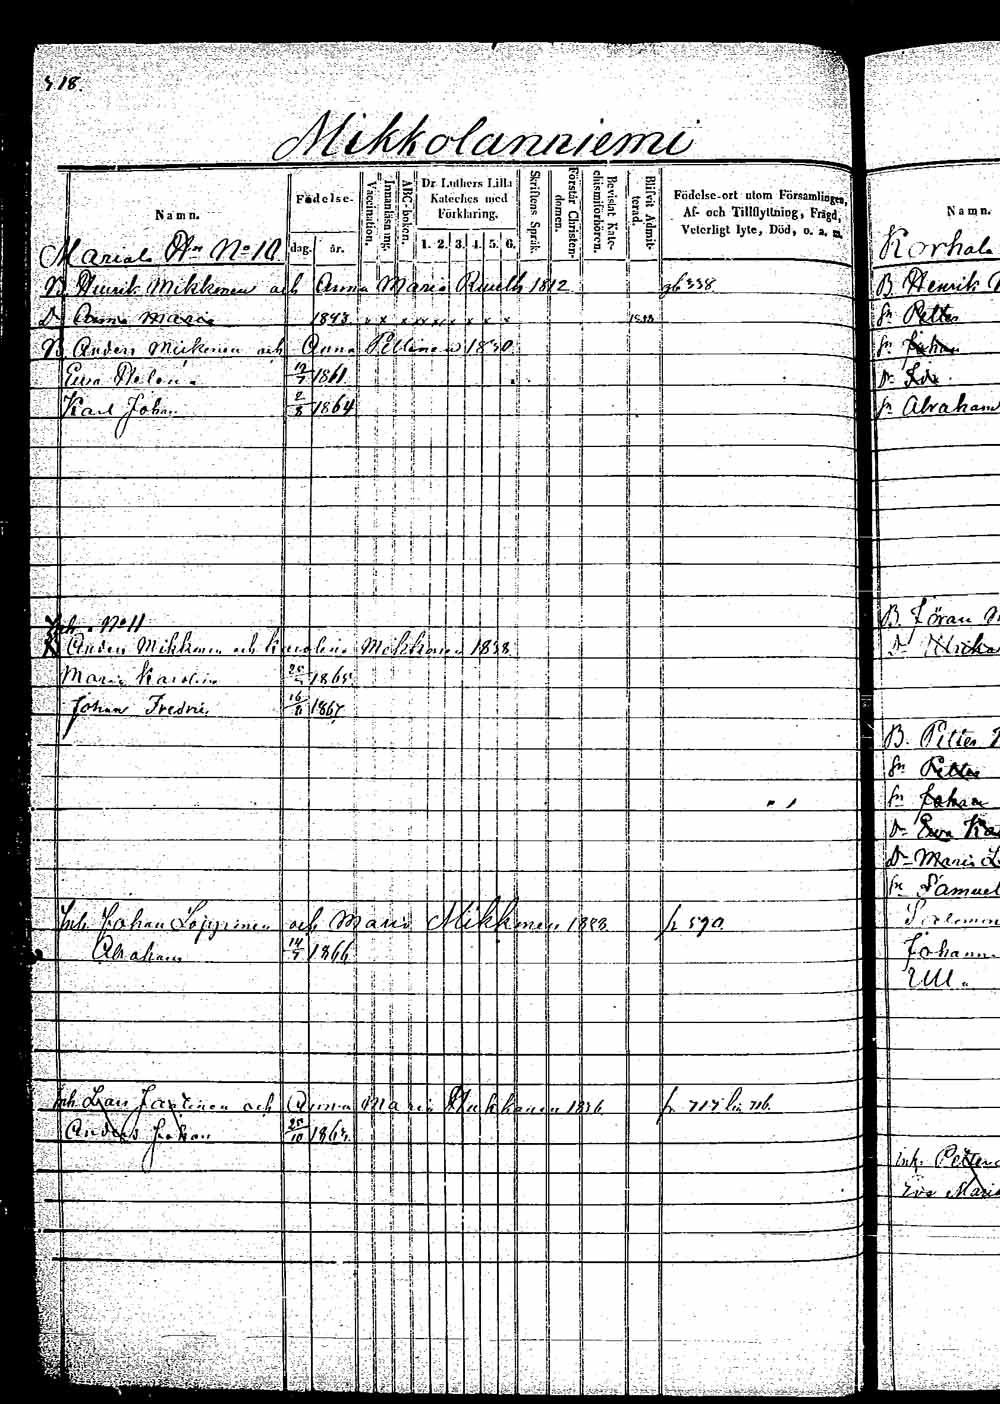 718.
Mikkolanniemi
Namn.
Födelse-
dag. år.
Vaccination.
Innanläsning.
ABC-boken.
Dr Luthers Lilla Kateches med Förklaring.
1. 2. 3. 4. 5. 6.
Skriftens Språk.
Förstår Christendomen.
Bevistat Katechismiförhören.
Blifvit Admitterad.
Födelse-ort utom Församlingen, Af- och Tillflyttning, Frägd, Veterligt lyte, Död, o. a. m.
Mariala No 10.
B. Henrik Mikkonen och Anna Maria 1812 338
D. Anna Maria 1843. x x x x x x x x x
B. Anders Mikkonen och Anna Pettinen 1830
Ewa Helena 1861
Karl Johan 2/8 1864
No 11
Anders Mikkonen och Karolina Mikkonen 1838
Maria Karolina 1865
Johan Fredric 16/11 1867
Inh. Johan Loppinen och Maria Mikkonen fr 590
Abraham 1866
Inh. Lars Partinen och Anna Maria 1836
Anders Johan 25/10
Namn.
Korhola
B Henrik
sn Petter
sn Johan
Dr
sn Abraham
B. Jöran
Dr Ulrika
B. Petter
sn Petter
sn Johan
Dr Ewa
Dr Maria
sn Samuel
Salomon
Johann
Ull
ink. Petter
Eva Maria